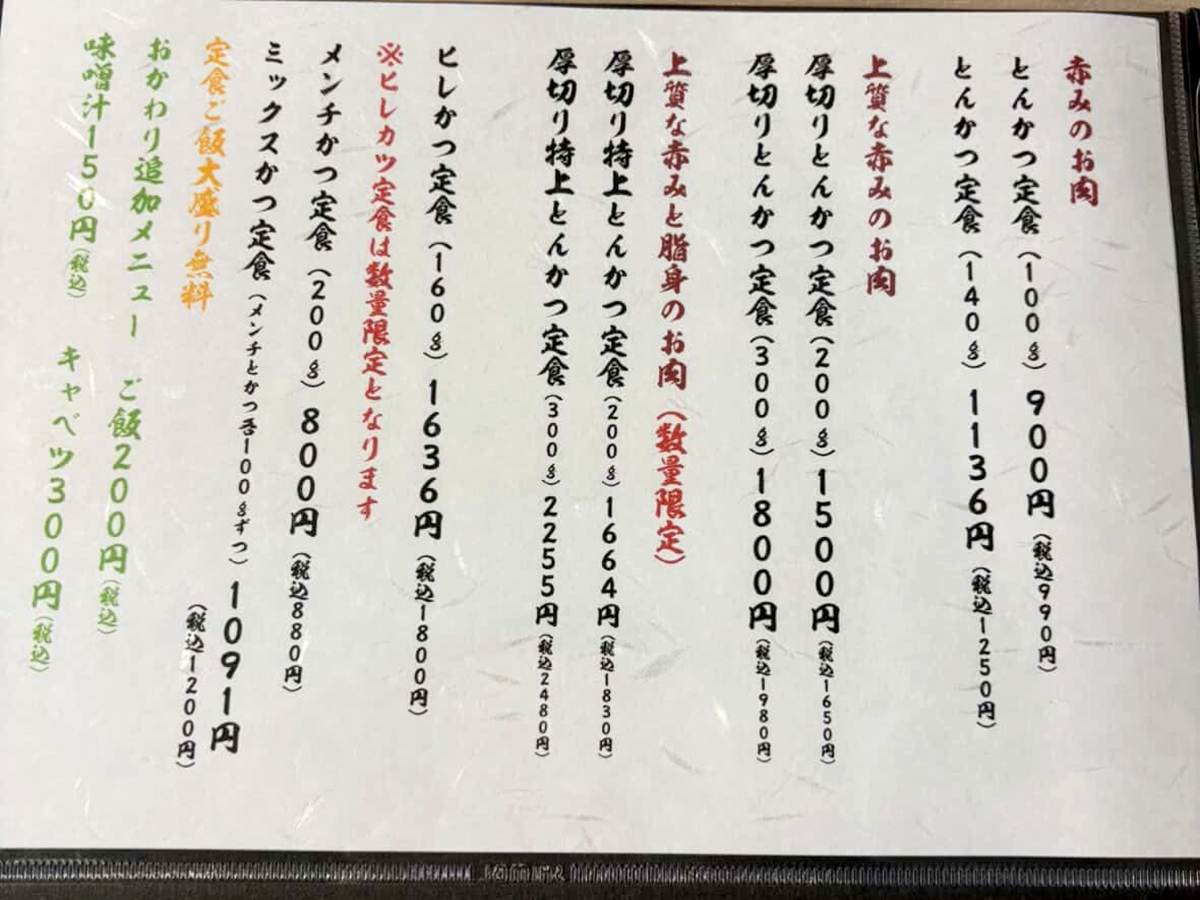 赤みのお肉
とんかつ定食（100g）900円（税込990円）
とんかつ定食（140g）1136円（税込1250円）
上質な赤みのお肉
厚切りとんかつ定食（200g）1500円（税込1650円）
厚切りとんかつ定食（300g）1800円（税込1980円）
上質な赤みと脂身のお肉（数量限定）
厚切り特上とんかつ定食（200g）1664円（税込1830円）
厚切り特上とんかつ定食（300g）2255円（税込2480円）
ヒレかつ定食（160g）1636円（税込1800円）
※ヒレカツ定食は数量限定となります
メンチかつ定食（200g）800円（税込880円）
ミックスかつ定食（メンチとかつ各100gずつ）1091円
（税込1200円）
定食ご飯大盛り無料
おかわり追加メニュー　ご飯200円（税込）
味噌汁150円（税込）　キャベツ300円（税込）